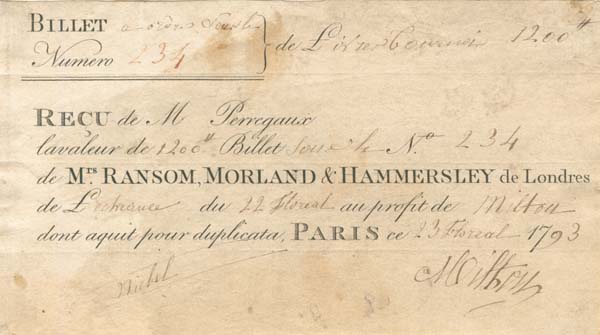 BILLET a ordre sous le
Numero 234
de Livres tournois 1200ᵗᵗ
REÇU de M Perregaux
lavaleur de 1200ᵗᵗ Billet sous le Nº 234
de Mrs RANSOM, MORLAND & HAMMERSLEY de Londres
de L'echéance du 22 floreal au profit de Milton
dont aquit pour duplicata, PARIS ce 23 floreal 1793